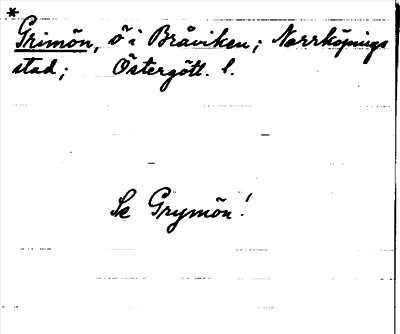 *
Grimön, ö i Bråviken; Norrköpings
stad; Östergötl. l.
Se Grymön!